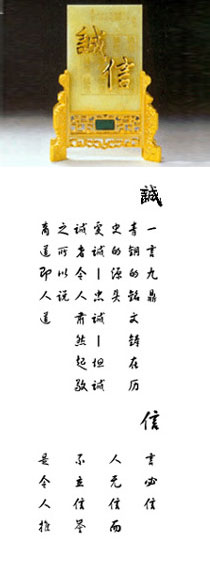 誠信
誠
一言九鼎
青铜的铭文铸在历
史的源头
诚—忠诚—坦诚
诚者令人肃然起敬
之所以说
商道即人道
信
言必信
人无信而
不立信誉
是令人推